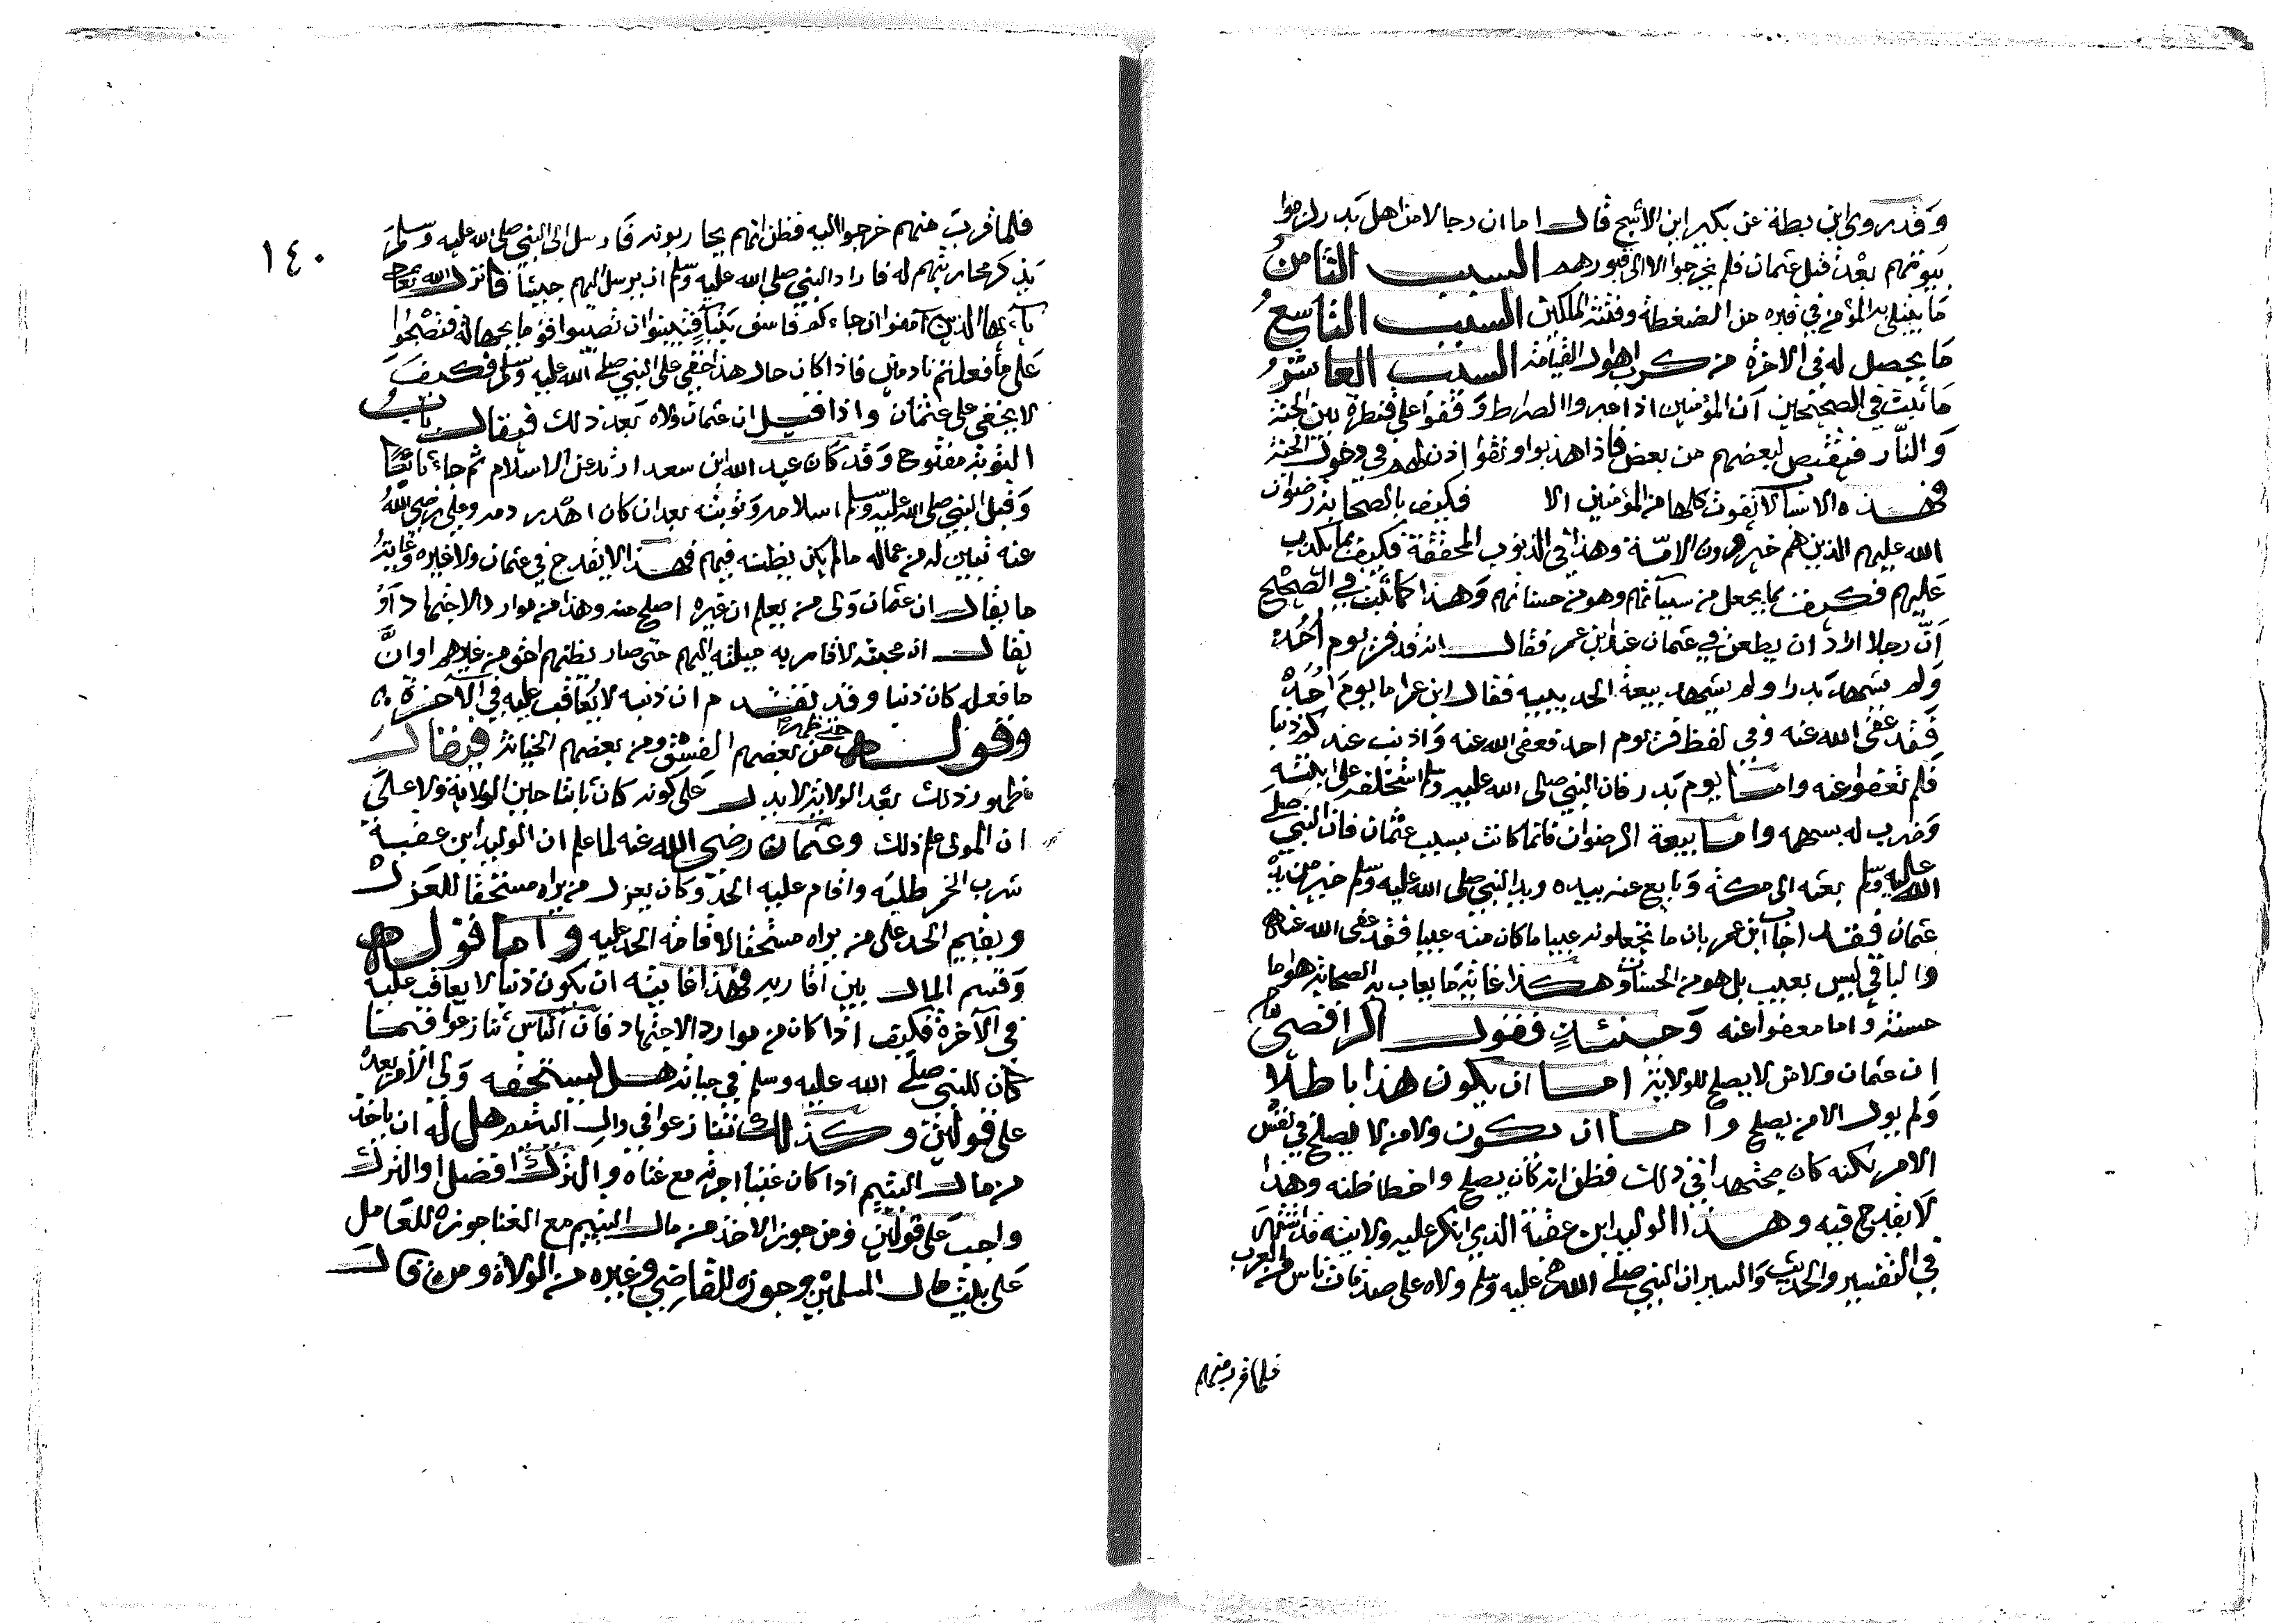 وقد روى ابن بطة عن بكير ابن الأشج قال اما ان رجالا من اهل بدر لزموا
بيوتهم بعد قتل عثمان فلم يخرجوا الا الى قبورهم السبب الثامن
ما يبتلى به المؤمن في قبره من الضغطة وفتنة الملكين السبب التاسع
ما يحصل له في الاخرة من كرب اهوال القيامة السبب العاشر
ما ثبت في الصحيحين أن المؤمنين اذا عبروا الصراط وقفوا على قنطرة بين الجنة
والنار فيقتص لبعضهم من بعض فاذا هذبوا ونقوا اذن لهم في دخول الجنة
فهذه الاسباب لا تفوت كلها من المؤمنين الا فكيف بالصحابة رضوان
الله عليهم الذين هم خير قرون الامة وهذا في الذنوب المحققة فكيف بما يكذب
عليهم فكيف بما يجعل من سيآتهم وهو من حسناتهم وهذا كما ثبت في الصحيح
أن رجلا اراد ان يطعن في عثمان عند ابن عمر فقال انه قد فر يوم أحد
ولم يشهد بدرا ولم يشهد بيعة الحديبية فقال ابن عمر اما يوم احد
فقد عفى الله عنه وفي لفظ فر يوم احد فعفى الله عنه واذنب عندكم ذنبا
فلم تعفوا عنه واما يوم بدر فان النبي صلى الله عليه وسلم استخلفه على ابنته
وضرب له بسهمه واما بيعة الرضوان فانما كانت بسبب عثمان فان النبي صلى
الله عليه وسلم بعثه الى مكة وبايع عنه بيده ويد النبي صلى الله عليه وسلم خير من يد
عثمان فقد اجاب ابن عمر بان ما تجعلونه عيبا ما كان منه عيبا فقد عفى الله عنه
والباقي ليس بعيب بل هو من الحسنات وهكذا عامة ما يعاب به الصحابة هو اما
حسنة واما معفوا عنه وحينئذ فقول الرافضي
ان عثمان ولا من لا يصلح للولاية اما ان يكون هذا باطلا
ولم يول الا من يصلح واما ان يكون ولا من لا يصلح في نفس
الامر لكنه كان مجتهدا في ذلك فظن انه كان يصلح واخطا ظنه وهذا
لا يقدح فيه وهذا الوليد ابن عقبة الذي انكر عليه ولايته قد اشتهر
في التفسير والحديث والسير ان النبي صلى الله عليه وسلم ولاه على صدقات ناس من العرب
فلما قرب منهم
١٤٠
فلما قرب منهم خرجوا اليه فظن انهم يحاربونه فارسل الى النبي صلى الله عليه وسلم
يذكر محاربتهم له فاراد النبي صلى الله عليه وسلم ان يرسل اليهم جيشا فانزل الله تعالى
يآ ايها الذين آمنوا ان جاءكم فاسق بنبأ فتبينوا ان تصيبوا قوما بجهالة فتصبحوا
على ما فعلتم نادمين فاذا كان حال هذا خفي على النبي صلى الله عليه وسلم فكيف
لا يخفى على عثمان واذا قيل ان عثمان ولاه بعد ذلك فيقال باب
التوبة مفتوح وقد كان عبد الله ابن سعد ارتد عن الاسلام ثم جاء تائبا
وقبل النبي صلى الله عليه وسلم اسلامه وتوبته بعد ان كان اهدر دمه وعلي رضي الله
عنه تبين له من عماله ما لم يكن يظنه فيهم فهذا لا يقدح في عثمان ولا غيره وغاية
ما يقال ان عثمان ولى من يعلم ان غيره اصلح منه وهذا من موارد الاجتهاد أو
يقال ان محبته لاقاربه ميلته اليهم حتى صار يظنهم احق من غيرهم او ان
ما فعله كان ذنبا وقد تقدم ان ذنبه لا يعاقب عليه في الآخرة
وقوله حتى ظهر من بعضهم الفسق ومن بعضهم الخيانة فيقال
ظهور ذلك بعد الولاية لا يدل على كونه كان ثابتا حين الولاية ولا على
ان المولى علم ذلك وعثمان رضي الله عنه لما علم ان الوليد ابن عقبة
شرب الخمر طلبه واقام عليه الحد وكان يعزل من يراه مستحقا للعزل
ويقيم الحد على من يراه مستحقا لاقامة الحد عليه واما قوله
وقسم المال بين اقاربه فهذا غايته ان يكون ذنبا لا يعاقب عليه
في الآخرة فكيف اذا كان من موارد الاجتهاد فان الناس تنازعوا فيما
كان للنبي صلى الله عليه وسلم في حياته هل يستحقه ولي الأمر بعده
على قولين وكذلك تنازعوا في والي اليتيم هل له ان ياخذ
من مال اليتيم اذا كان غنيا اجرته مع غناه والترك افضل او الترك
واجب على قولين ومن جوز الاخذ من مال اليتيم مع الغنا جوزه للعامل
على بيت مال المسلمين وجوزه للقاضي وغيره من الولاة ومن قال